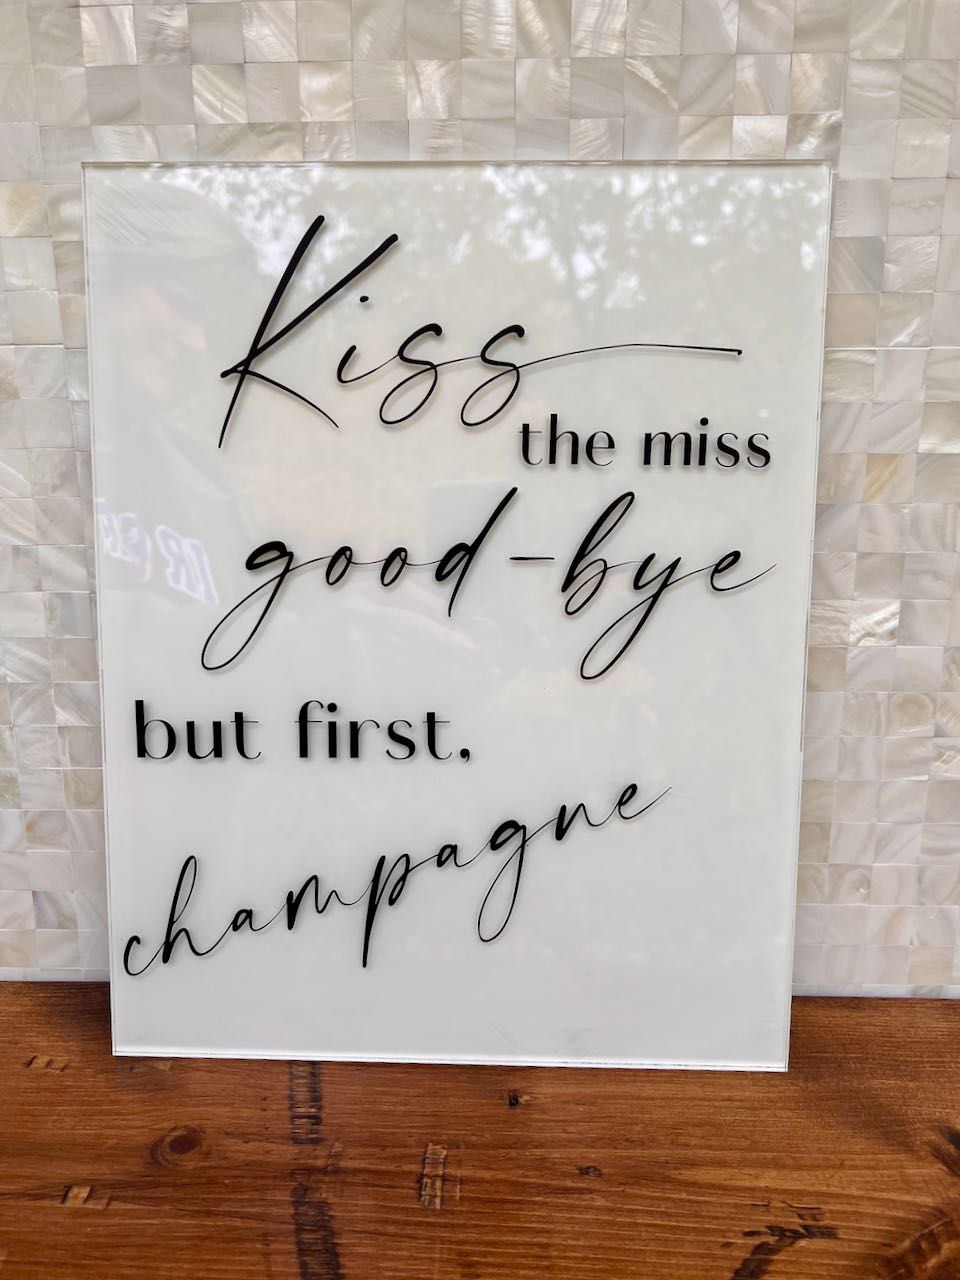 Kiss
the miss
good-bye
but first,
champagne